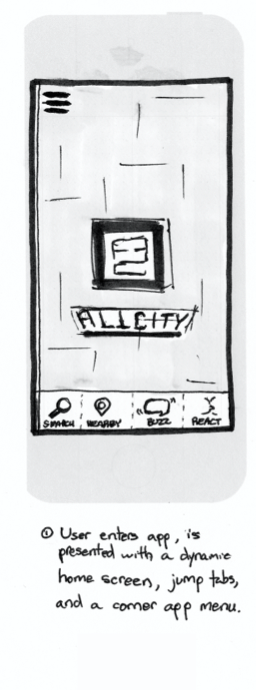 ALLCITY
SEARCH NEARBY BUZZ REACT
① User enters app, is
presented with a dynamic
home screen, jump tabs,
and a corner app menu.